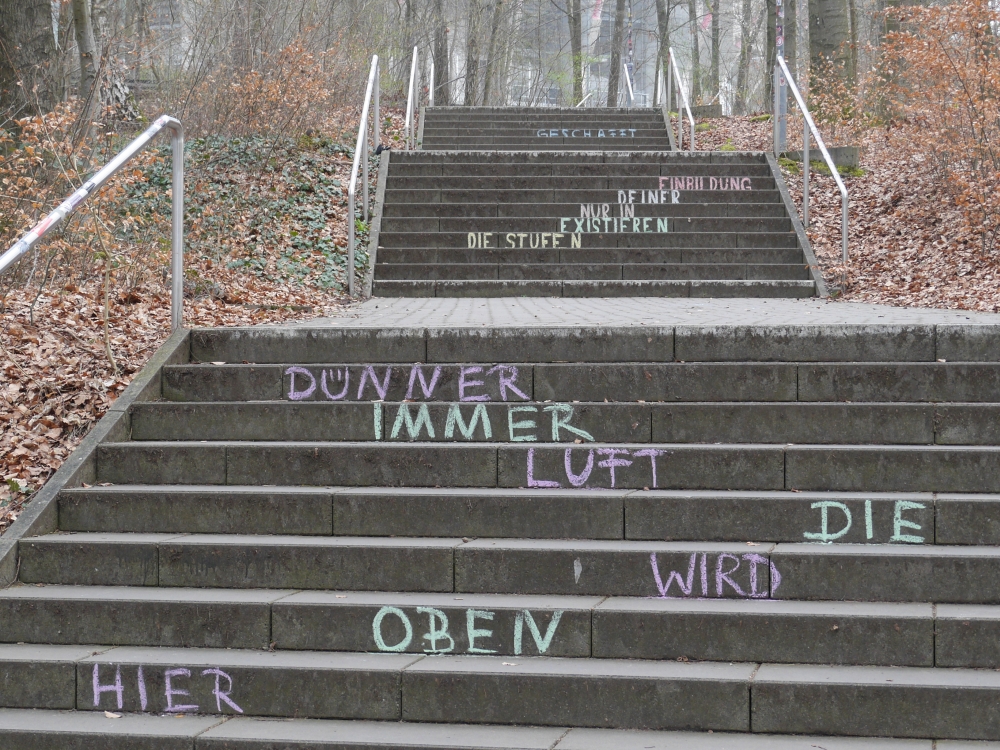 HIER
OBEN
WIRD
DIE
LUFT
IMMER
DÜNNER
DIE STUFEN
EXISTIEREN
NUR IN
DEINER
EINBILDUNG
GESCHAFFT